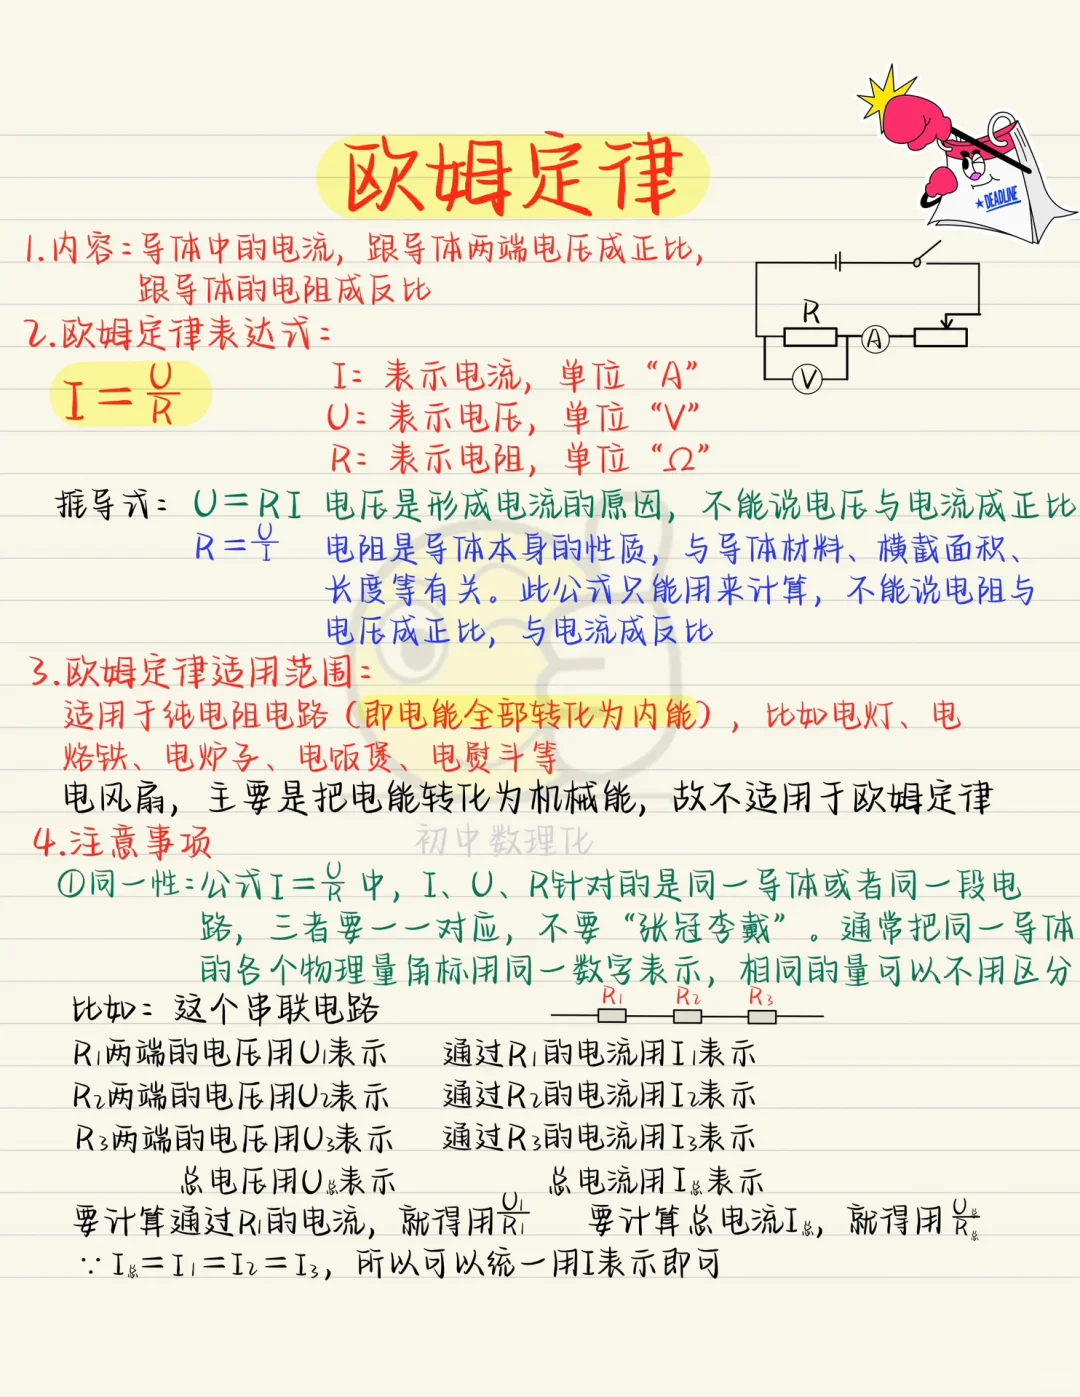 欧姆定律
★DEADLINE
1.内容:导体中的电流，跟导体两端电压成正比，
跟导体的电阻成反比
2.欧姆定律表达式:
I=U/R
I: 表示电流，单位“A”
U: 表示电压，单位“V”
R: 表示电阻，单位“Ω”
R
A
V
推导式: U=RI 电压是形成电流的原因，不能说电压与电流成正比
R=U/I 电阻是导体本身的性质，与导体材料、横截面积、
长度等有关。此公式只能用来计算，不能说电阻与
电压成正比，与电流成反比
3.欧姆定律适用范围:
适用于纯电阻电路（即电能全部转化为内能），比如电灯、电
烙铁、电炉子、电饭煲、电熨斗等
电风扇，主要是把电能转化为机械能，故不适用于欧姆定律
初中数理化
4.注意事项
①同一性:公式I=U/R中，I、U、R针对的是同一导体或者同一段电
路，三者要一一对应，不要“张冠李戴”。通常把同一导体
的各个物理量角标用同一数字表示，相同的量可以不用区分
比如: 这个串联电路 R1 R2 R3
R1两端的电压用U1表示 通过R1的电流用I1表示
R2两端的电压用U2表示 通过R2的电流用I2表示
R3两端的电压用U3表示 通过R3的电流用I3表示
总电压用U总表示 总电流用I总表示
要计算通过R1的电流，就得用U1/R1 要计算总电流I总，就得用U总/R总
∵ I总=I1=I2=I3，所以可以统一用I表示即可